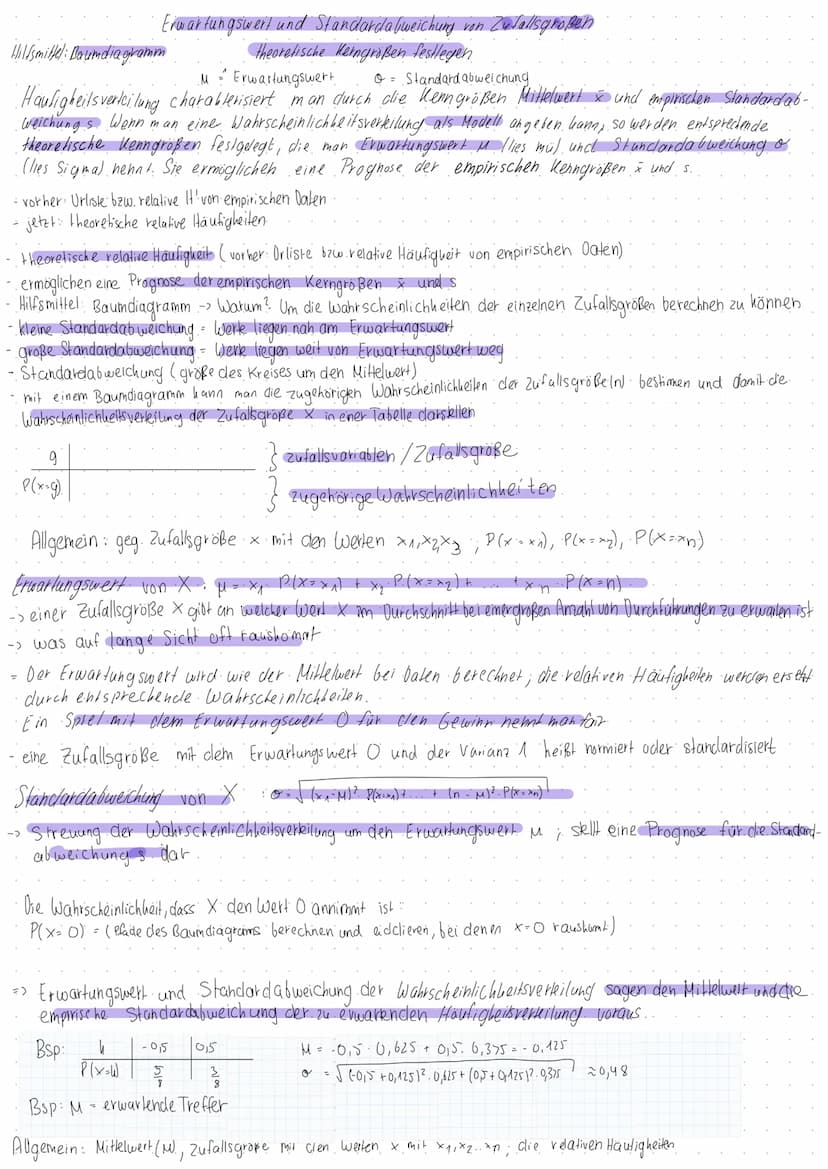 Erwartungswert und Standardabweichung von Zufallsgrößen
Hilfsmittel: Baumdiagramm theoretische Kerngrößen festlegen
μ = Erwartungswert σ = Standardabweichung
Häufigkeitsverteilung charakterisiert man durch die Kenngrößen Mittelwert x̄ und empirischen Standardab-
weichung s. Wenn man eine Wahrscheinlichkeitsverteilung als Modell angeben kann, so werden entsprechnde
theoretische Kenngrößen festgelegt, die man Erwartungswert μ (lies mü) und Standardabweichung σ
(lies Sigma) nehnt. Sie ermöglichen eine Prognose der empirischen Kenngrößen x̄ und s.
- vorher: Urliste bzw. relative H' von empirischen Daten
- jetzt: theoretische relative Häufigkeiten
- theoretische relative Häufigkeit (vorher Urliste bzw. relative Häufigkeit von empirischen Daten)
- ermöglichen eine Prognose der empirischen Kerngrößen x̄ und s
- Hilfsmittel: Baumdiagramm -> Warum? Um die Wahrscheinlichkeiten der einzelnen Zufallsgrößen berechnen zu können
- kleine Standardabweichung = Werte liegen nah am Erwartungswert
- große Standardabweichung = Werte liegen weit von Erwartungswert weg
- Standardabweichung (größe des Kreises um den Mittelwert)
- mit einem Baumdiagramm kann man die zugehörigen Wahrscheinlichkeiten der Zufallsgröße(n) bestimen und damit die
Wahrscheinlichkeitsverteilung der Zufallsgröße X in ener Tabelle darstellen
g } Zufallsvariablen / Zufallsgröße
P(x=g) } zugehörige Wahrscheinlichkeiten
Allgemein: geg. Zufallsgröße x mit den Werten x1,x2,x3 ; P(x=x1), P(x=x2), P(x=xn)
Erwartungswert von X: μ = x1 · P(x=x1) + x2 · P(x=x2) + ... + xn · P(x=n)
-> einer Zufallsgröße X gibt an welcher Wert X im Durchschnitt bei einer großen Anzahl von Durchführungen zu erwarten ist
-> was auf lange Sicht oft rauskommt
= Der Erwartungswert wird wie der Mittelwert bei Daten berechnet; die relativen Häufigkeiten werden ersetzt
durch entsprechende Wahrscheinlichkeiten.
- Ein Spiel mit dem Erwartungswert 0 für den Gewinn nehnt man fair
- eine Zufallsgröße mit dem Erwartungswert 0 und der Varianz 1 heißt normiert oder standardisiert
Standardabweichung von X : σ = √((x1-μ)² · P(x=x1) + ... + (n-μ)² · P(x=xn))
-> Streuung der Wahrscheinlichkeitsverteilung um den Erwartungswert μ ; stellt eine Prognose für die Standard-
abweichung s dar
Die Wahrscheinlichkeit, dass X den Wert 0 annimmt ist:
P(x=0) = (Pfade des Baumdiagrams berechnen und addieren, bei denen x=0 rauskomt)
=> Erwartungswert und Standardabweichung der Wahrscheinlichkeitsverteilung sagen den Mittelwert und die
empirische Standardabweichung der zu erwarenden Häufigkeitsverteilung voraus.
Bsp: k | -0,5 | 0,5 μ = -0,5 · 0,625 + 0,5 · 0,375 = -0,125
P(x=k) | 5/8 | 3/8 σ = √((-0,5+0,125)² · 0,625 + (0,5+0,125)² · 0,375) ≈ 0,48
Bsp: μ = erwartende Treffer
Allgemein: Mittelwert (μ), Zufallsgröße mit den Werten x mit x1, x2...xn; die relativen Häufigkeiten